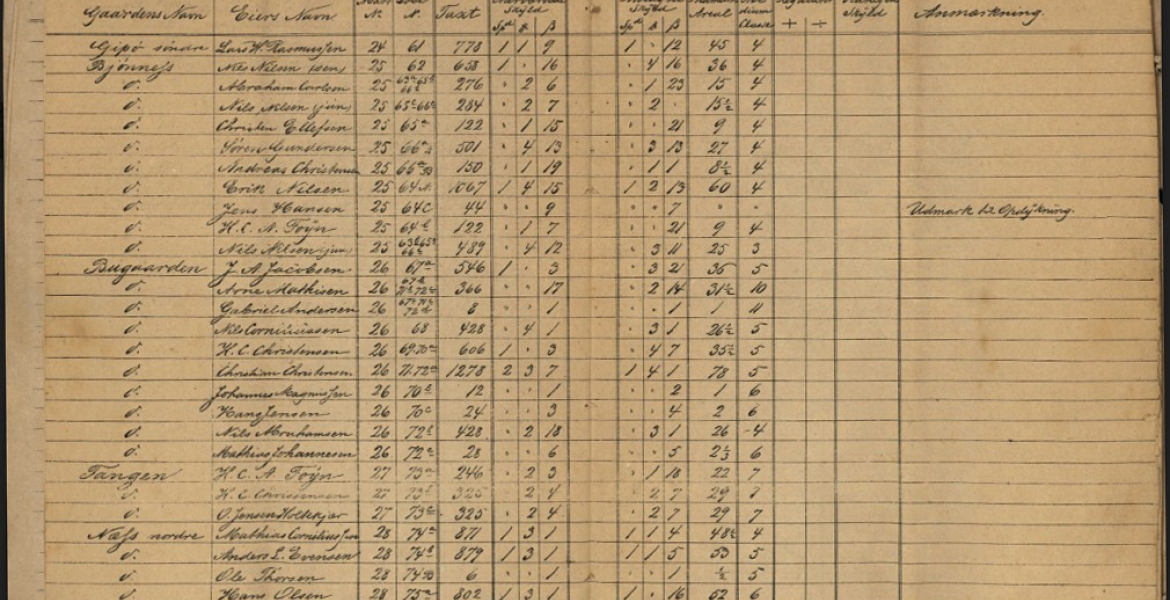 Gaardens Navn Eiers Navn N. N. Taxt Skyld Skyld Areal Classe + + Skyld Anmærkning.
Spd ₰ β Spd ₰ β
Gipø söndre Lars W. Rasmussen 24 61 778 1 1 9 1 · 12 45 4
Bjönness Nils Nilsen 25 62 658 1 · 16 · 4 16 36 4
d. Abraham Carlsen 25 276 · 2 6 · 1 23 15 4
d. Nils Nilsen (jun) 25 284 · 2 7 · 2 · 15½ 4
d. Christen Ellefsen 25 65a 122 · 1 15 · · 21 9 4
d. Sören Gundersen 25 501 · 4 13 · 3 13 27 4
d. Andreas Christensen 25 150 · 1 19 · 1 1 8½ 4
d. Erik Nilsen 25 1067 1 4 15 1 2 13 60 4
d. Jens Hansen 25 64c 44 · · 9 · · 7 · · Udmark til Opdykning.
d. H. C. A. Föyn 25 64b 122 · 1 7 · · 21 9 4
d. Nils Nilsen (jun) 25 489 · 4 12 · 3 11 25 3
Bugaarden J. A. Jacobsen 26 67a 546 1 · 3 · 3 21 36 5
d. Arne Mathisen 26 366 · · 17 · 2 14 31½ 10
d. Gabriel Andersen 26 8 · · 1 · · 1 1 11
d. Nils Corniliussen 26 68 428 · 4 1 · 3 1 26½ 5
d. H. C. Christensen 26 69.70a 606 1 · 3 · 4 7 35½ 5
d. Christian Christensen 26 71.72a 1278 2 3 7 1 4 1 78 5
d. Johannes Magnussen 26 70b 12 · · 1 · · 2 1 6
d. Hans Jensen 26 70c 24 · · 3 · · 4 2 6
d. Nils Abrahamsen 26 72b 428 · 2 18 · 3 1 26 4
d. Mathias Johannesen 26 72a 28 · · 6 · · 5 2⅓ 6
Tangen H. C. A. Föyn 27 73a 246 · 2 3 · 1 18 22 7
d. H. C. Christensen 27 73b 325 · 2 4 · 2 7 29 7
d. O. Jensen Holtekjær 27 73c 325 · 2 4 · 2 7 29 7
Næss nordre Mathias Cornelius 28 74a 871 1 3 1 1 1 4 48½ 4
d. Anders L. Evensen 28 74b 879 1 3 1 · 1 5 53 5
d. Ole Thorsen 28 6 · · 1 · · 1 ½ 5
d. Hans Olsen 28 75a 802 1 3 1 1 · 16 52 6